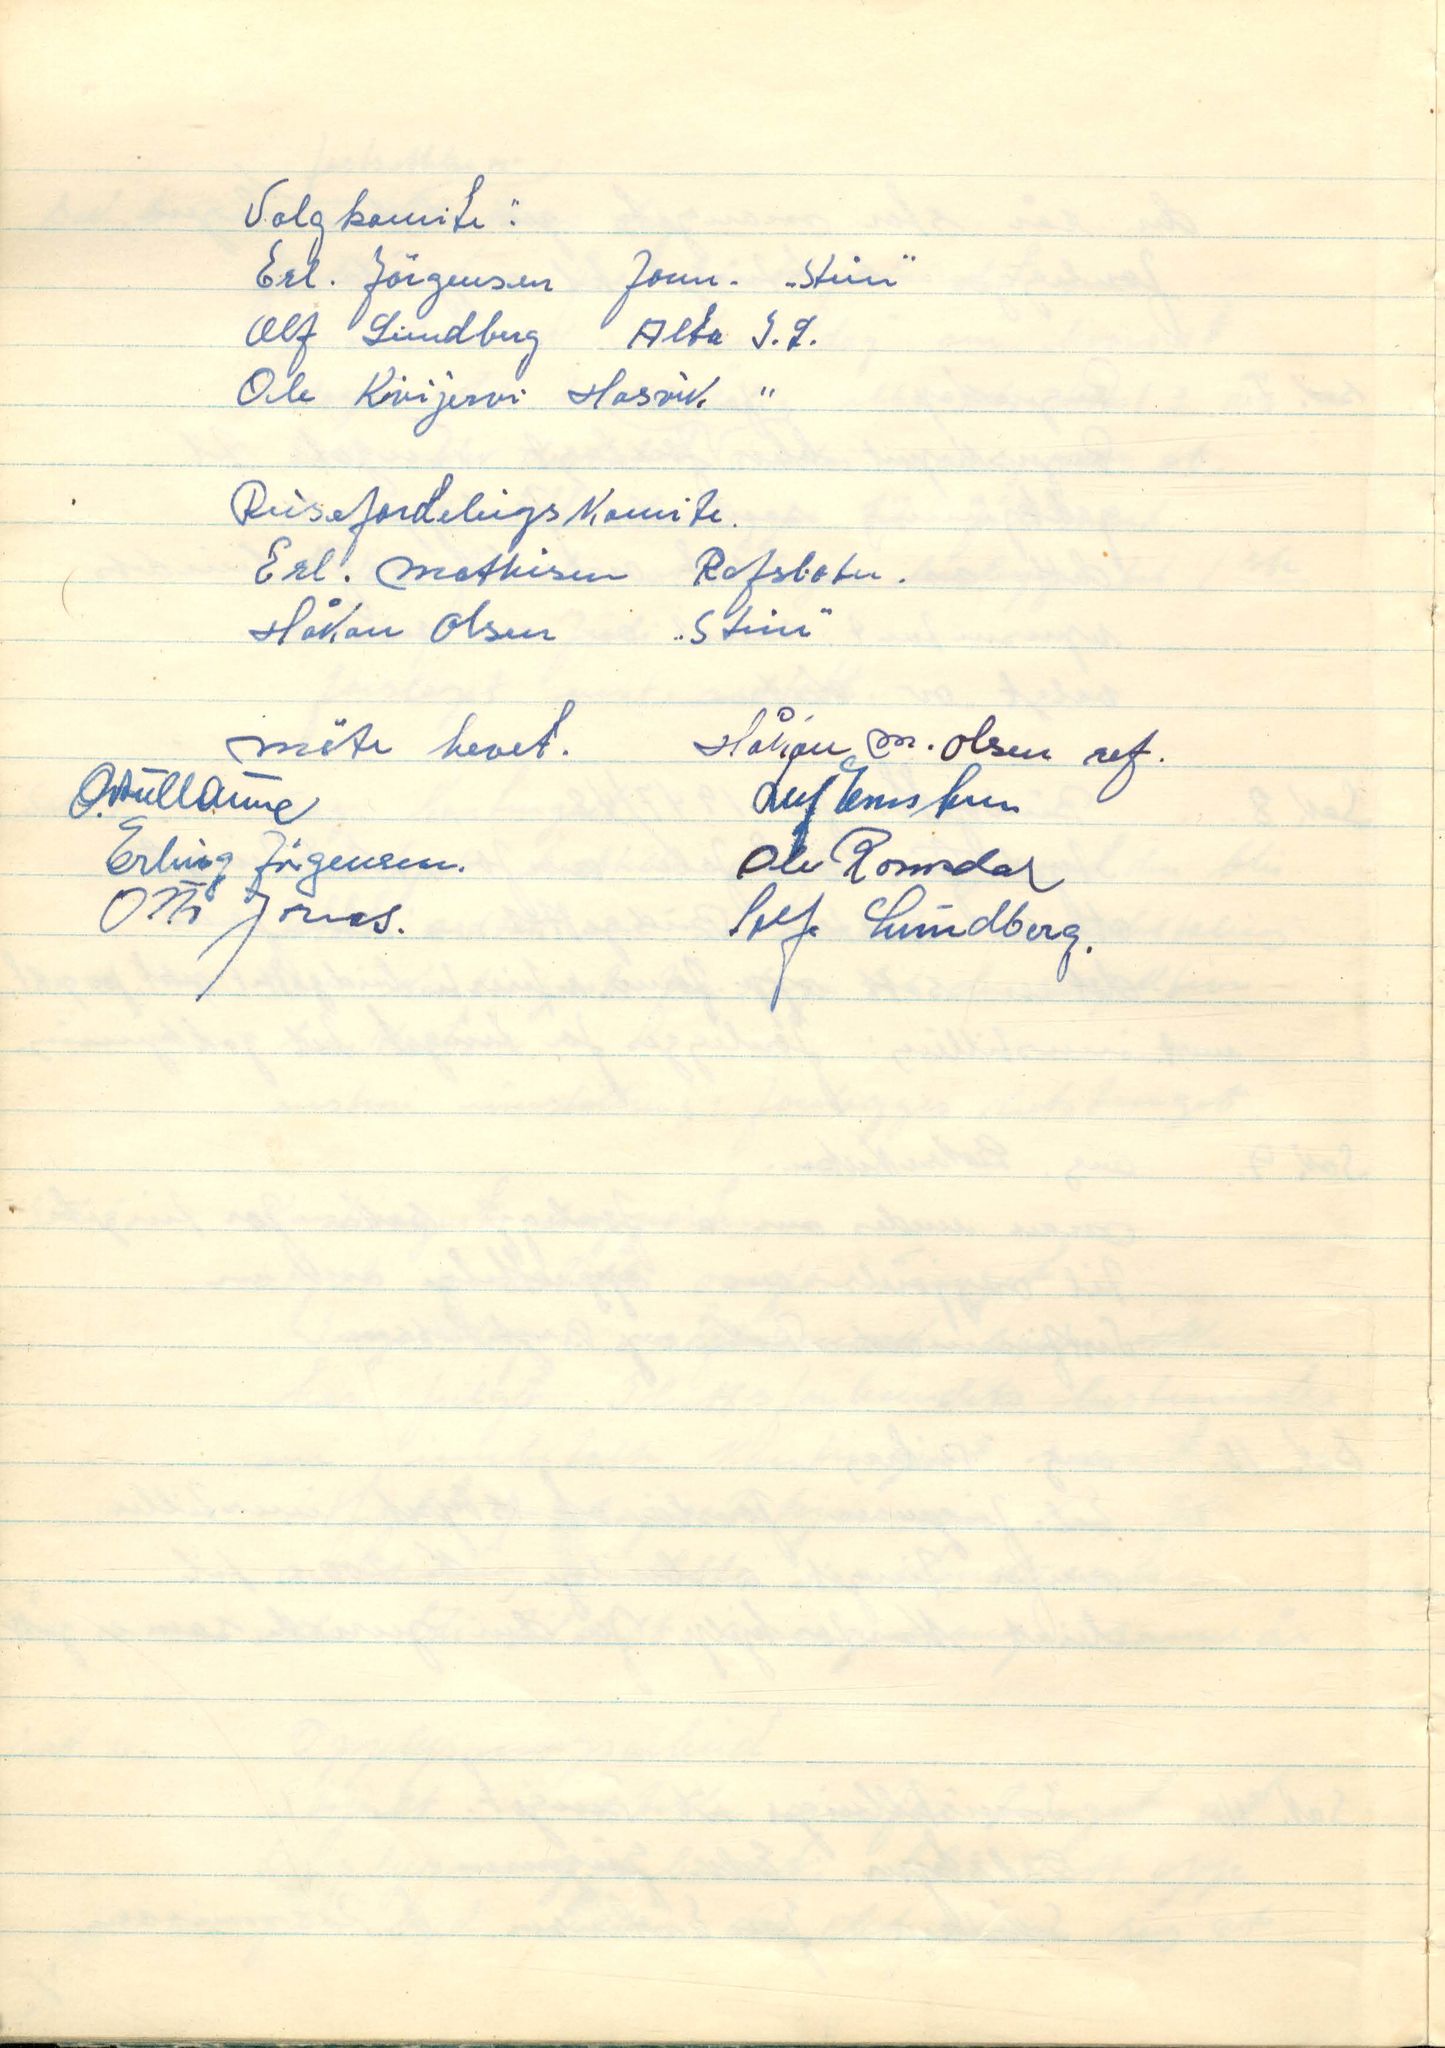 Valgkomite:
Erl. Jörgensen Form. "Stein"
Alf Lundberg Alta I.L.
Ole Kivijervi Hasvik "
Reisefordelingskomite.
Erl. Mathisen Rafsbotn.
Håkon Olsen "Stein"
Möte hevet. Håkon M. Olsen ref.
Erling Jörgensen. Ole Romsdal
Otto Jonas. Alf Lundberg.